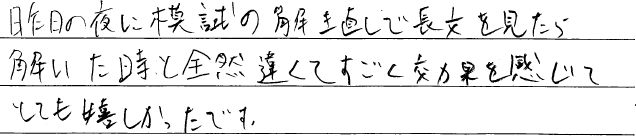 昨日の夜に模試の解き直しで長文を見たら
解いた時と全然違くてすごく効果を感じて
とても嬉しかったです。